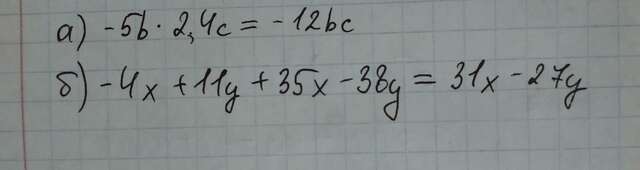 а) -5b · 2,4c = -12bc
б) -4x + 11y + 35x - 38y = 31x - 27y